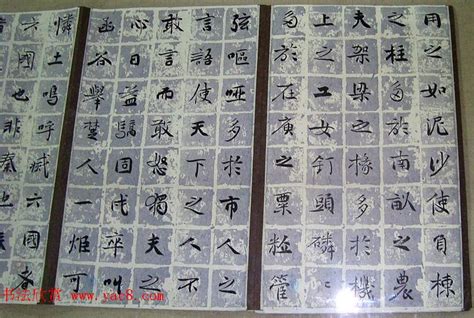 用之如泥沙使負棟
之柱多於南畝之農
夫架梁之椽多於機
上之工女釘頭磷磷
多於在庾之粟粒管
弦嘔啞多於市人之
言語使天下之人不
敢言而敢怒獨夫之
心日益驕固戍卒叫
函谷舉楚人一炬可
憐土嗚呼滅六國者
六國也非秦也
书法欣赏 www.yac8.com